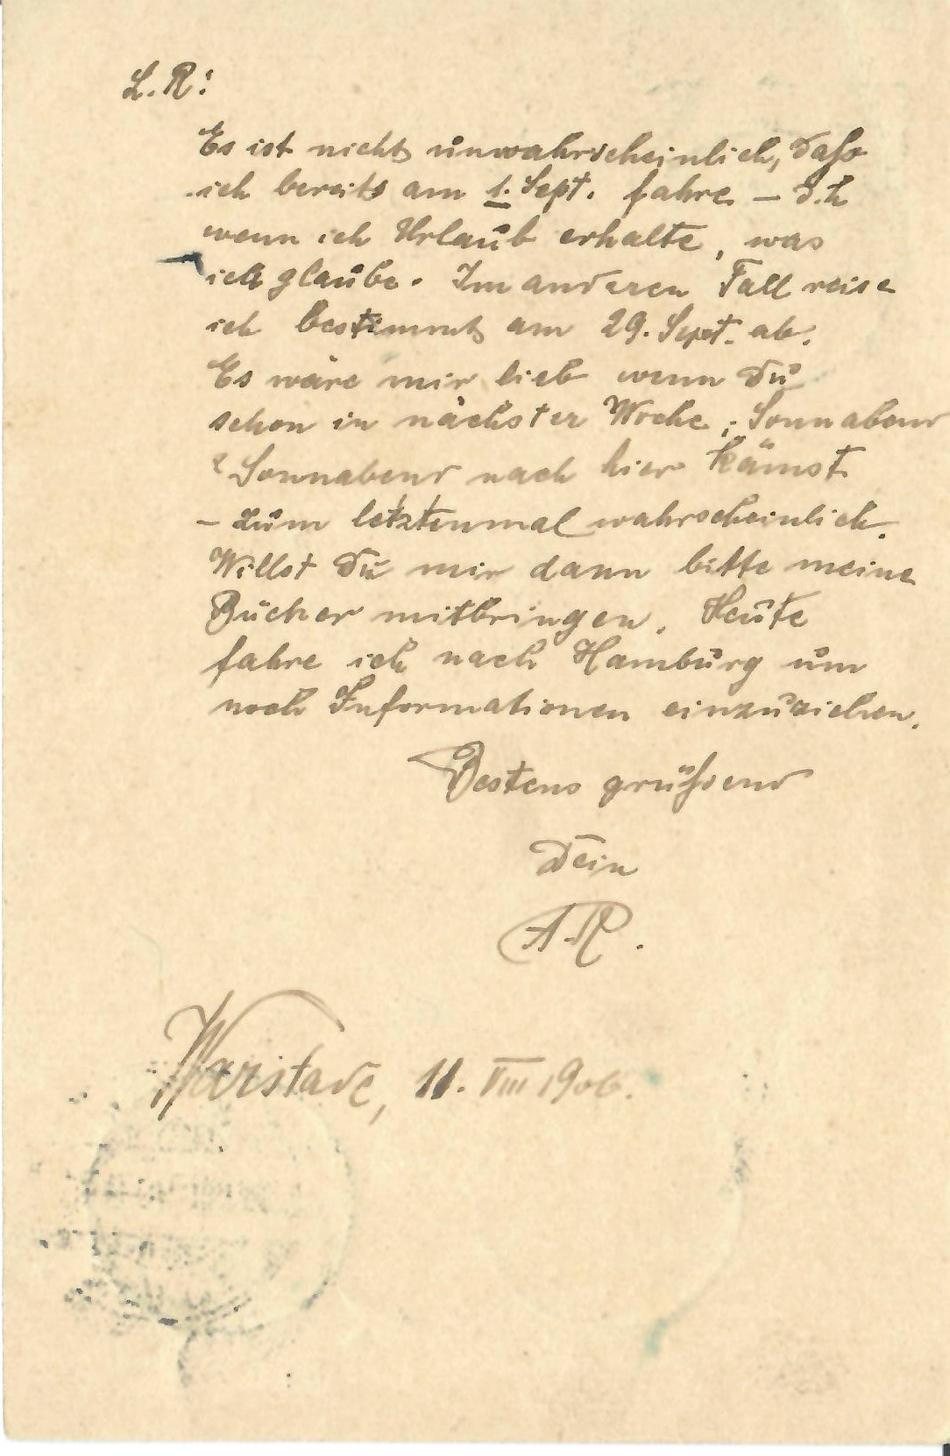 L. R:
Es ist nicht unwahrscheinlich, dass
ich bereits am 1. Sept. fahre – d.h
wenn ich Urlaub erhalte, was
ich glaube. Im anderen Fall reise
ich bestimmt am 29. Sept. ab.
Es wäre mir lieb wenn Du
schon in nächster Woche, Sonnabend
Sonnabend nach hier kämst
– zum letztenmal wahrscheinlich.
Willst Du mir dann bitte meine
Bücher mitbringen. Heute
fahre ich nach Hamburg um
noch Informationen einzuziehen.
Bestens grüssend
Dein
A.R.
Warstade, 11. VIII 1906.